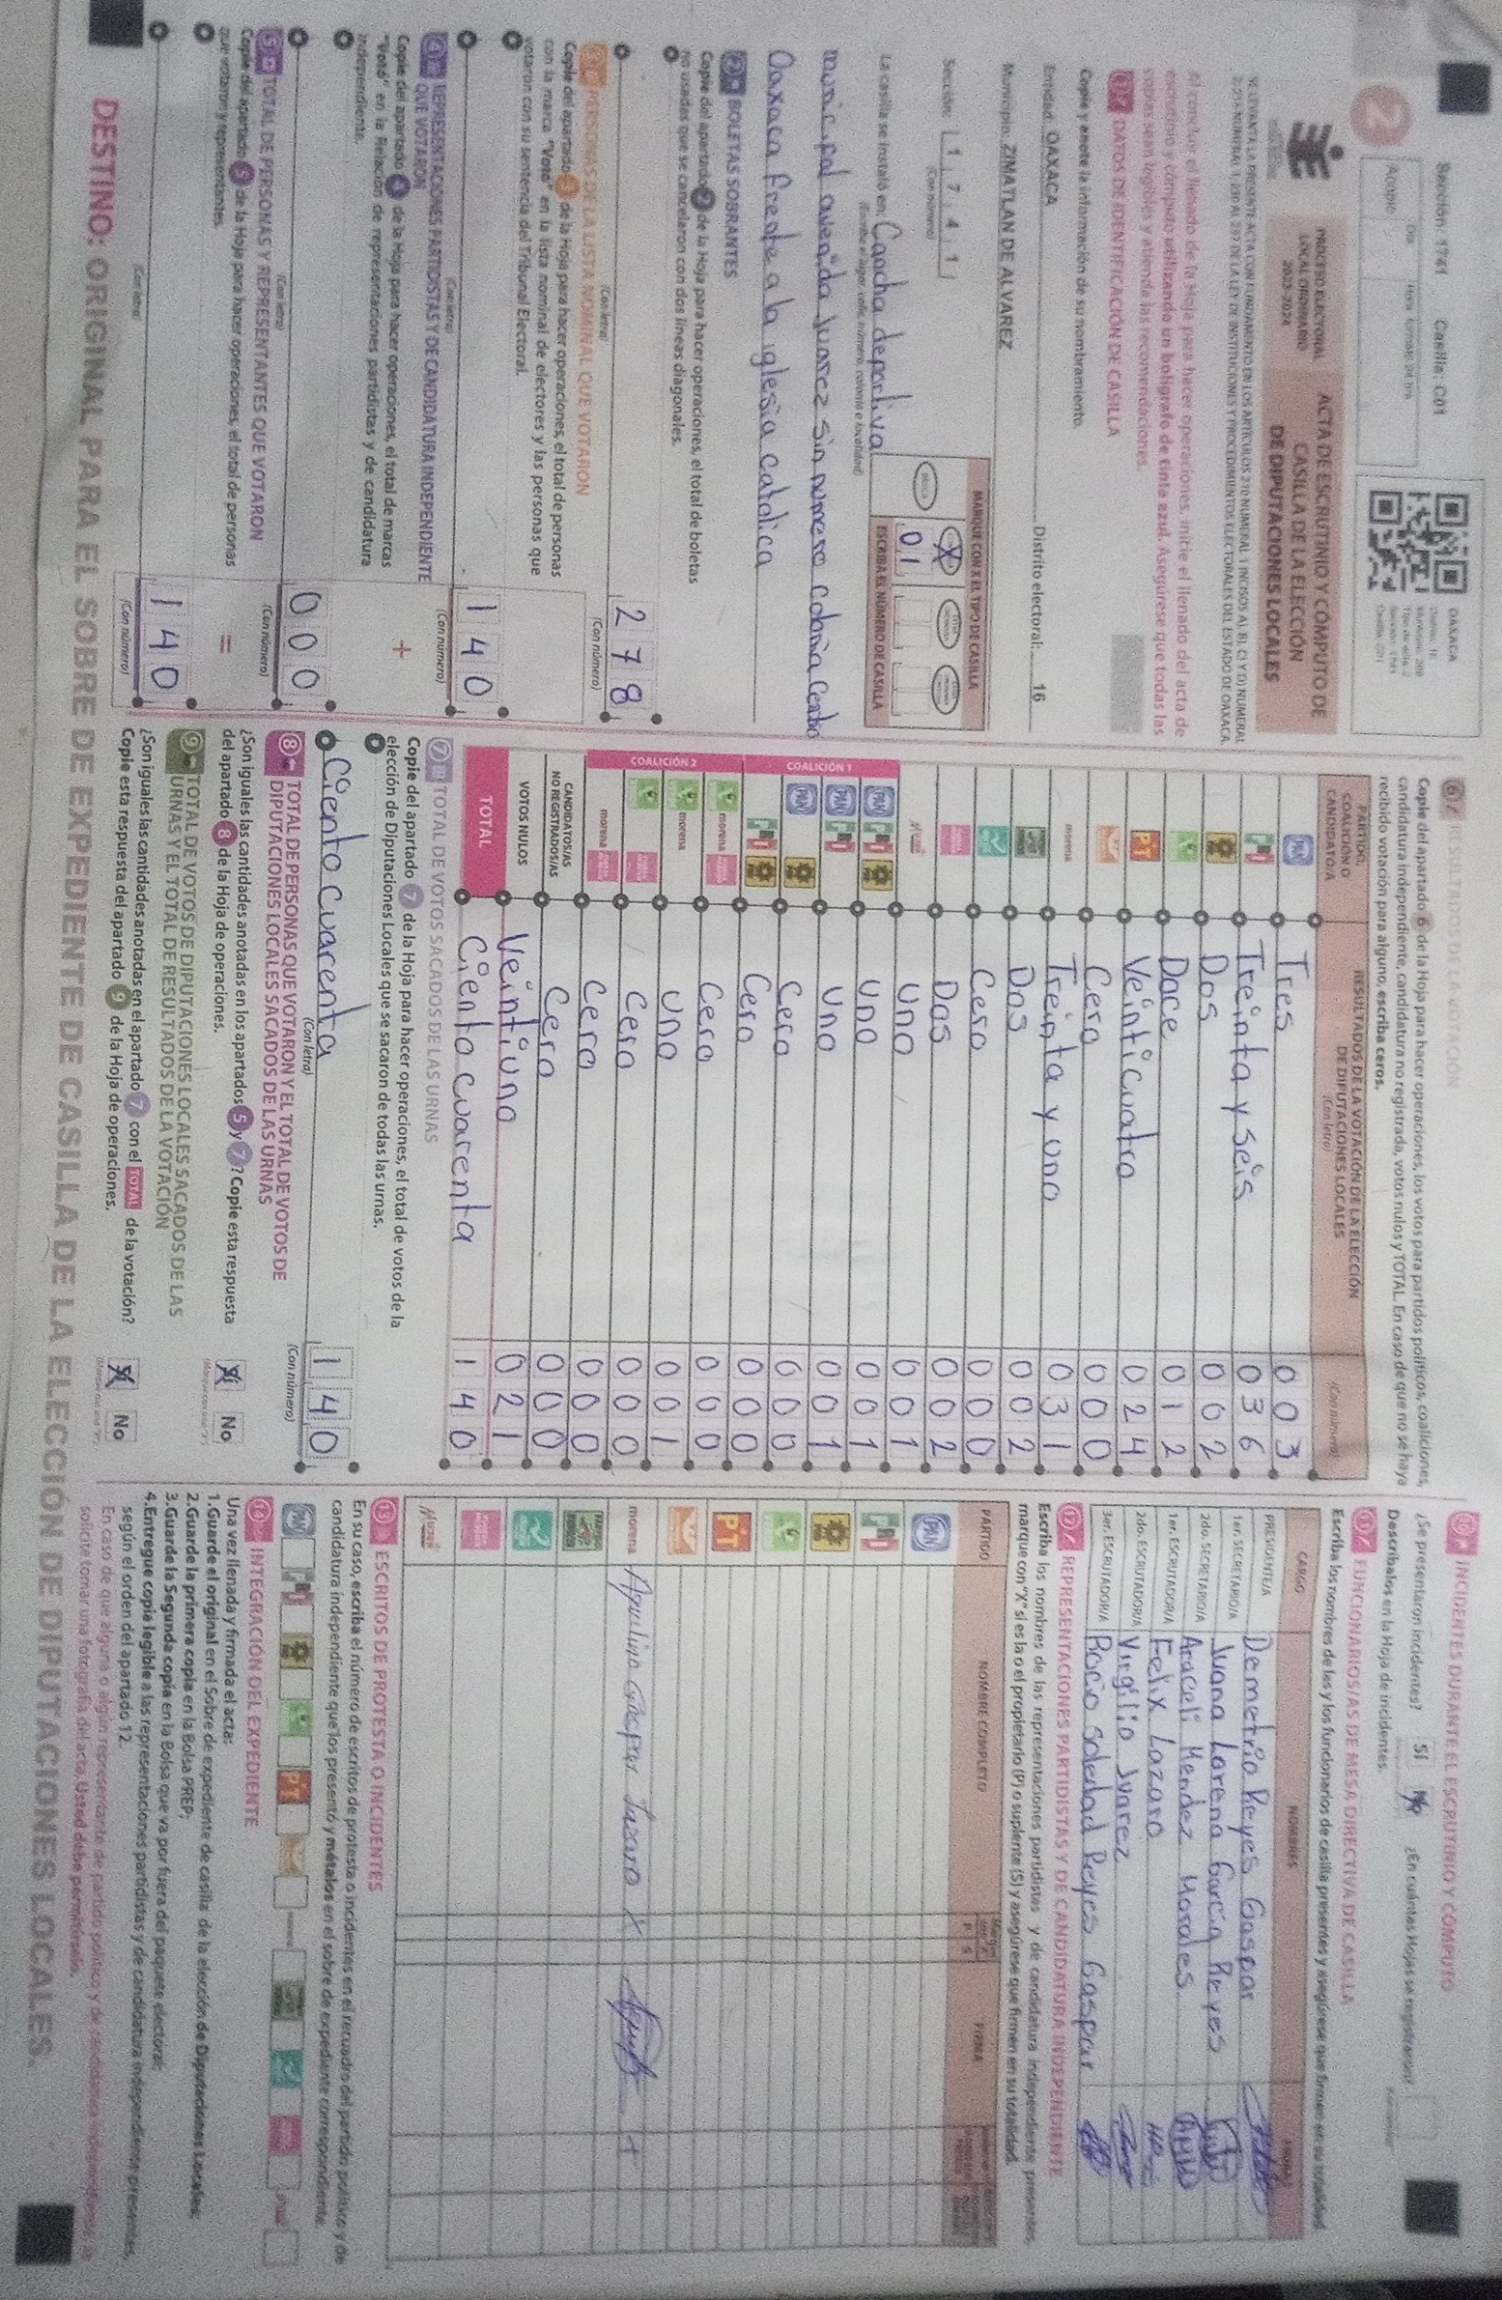 Sección: 1741 Casilla: C01
OAXACA
2
Acopio
PROCESO ELECTORAL
LOCAL ORDINARIO
2023-2024
ACTA DE ESCRUTINIO Y CÓMPUTO DE
CASILLA DE LA ELECCIÓN
DE DIPUTACIONES LOCALES
Al concluir el llenado de la Hoja para hacer operaciones, inicie el llenado del acta de
escrutinio y cómputo utilizando un bolígrafo de tinta azul. Asegúrese que todas las
copias sean legibles y atienda las recomendaciones.
1 DATOS DE IDENTIFICACIÓN DE CASILLA
Copie y anote la información de su nombramiento.
Entidad: OAXACA Distrito electoral: 16
Municipio: ZIMATLAN DE ALVAREZ
Sección: 1 7 4 1
(Con número)
MARQUE CON X EL TIPO DE CASILLA
X
01
ESCRIBA EL NÚMERO DE CASILLA
La casilla se instaló en: Cancha deportiva
(Escriba el lugar, calle, número, colonia o localidad)
municipal avenida Juarez sin numero colonia Centro
Oaxaca frente a la iglesia catolica
2 BOLETAS SOBRANTES
Copie del apartado 2 de la Hoja para hacer operaciones, el total de boletas
no usadas que se cancelaron con dos líneas diagonales.
278
(Con letra) (Con número)
3 PERSONAS DE LA LISTA NOMINAL QUE VOTARON
Copie del apartado 3 de la Hoja para hacer operaciones, el total de personas
con la marca "Votó" en la lista nominal de electores y las personas que
votaron con su sentencia del Tribunal Electoral.
140
(Con letra) (Con número)
4 REPRESENTACIONES PARTIDISTAS Y DE CANDIDATURA INDEPENDIENTE
QUE VOTARON
Copie del apartado 4 de la Hoja para hacer operaciones, el total de marcas
"Votó" en la Relación de representaciones partidistas y de candidatura
independiente.
+
000
(Con letra) (Con número)
5 TOTAL DE PERSONAS Y REPRESENTANTES QUE VOTARON
Copie del apartado 5 de la Hoja para hacer operaciones, el total de personas
que votaron y representantes.
=
140
(Con letra) (Con número)
6 RESULTADOS DE LA VOTACIÓN
Copie del apartado 6 de la Hoja para hacer operaciones, los votos para partidos políticos, coaliciones,
candidatura independiente, candidatura no registrada, votos nulos y TOTAL. En caso de que no se haya
recibido votación para alguno, escriba ceros.
PARTIDO,
COALICIÓN O
CANDIDATO/A
RESULTADOS DE LA VOTACIÓN DE LA ELECCIÓN
DE DIPUTACIONES LOCALES
(Con letra) (Con número)
PAN Tres 003
Treinta y seis 036
Dos 002
Doce 012
PT Veinticuatro 024
Cero 000
morena Treinta y uno 031
Dos 002
Cero 000
Dos 002
Uno 001
COALICIÓN 1
PAN Uno 001
PAN Uno 001
PAN Cero 000
Cero 000
COALICIÓN 2
morena Cero 000
morena Uno 001
Cero 000
morena Cero 000
CANDIDATOS/AS
NO REGISTRADOS/AS Cero 000
VOTOS NULOS Veintiuno 021
TOTAL Ciento cuarenta 140
7 TOTAL DE VOTOS SACADOS DE LAS URNAS
Copie del apartado 7 de la Hoja para hacer operaciones, el total de votos de la
elección de Diputaciones Locales que se sacaron de todas las urnas.
Ciento Cuarenta 140
(Con letra) (Con número)
8 TOTAL DE PERSONAS QUE VOTARON Y EL TOTAL DE VOTOS DE
DIPUTACIONES LOCALES SACADOS DE LAS URNAS
¿Son iguales las cantidades anotadas en los apartados 5 y 7? Copie esta respuesta
del apartado 8 de la Hoja de operaciones.
Sí No
9 TOTAL DE VOTOS DE DIPUTACIONES LOCALES SACADOS DE LAS
URNAS Y EL TOTAL DE RESULTADOS DE LA VOTACIÓN
¿Son iguales las cantidades anotadas en el apartado 7 con el TOTAL de la votación?
Copie esta respuesta del apartado 9 de la Hoja de operaciones.
Sí No
10 INCIDENTES DURANTE EL ESCRUTINIO Y CÓMPUTO
¿Se presentaron incidentes? Sí No ¿En cuántas Hojas se registraron?
Descríbalos en la Hoja de incidentes.
11 FUNCIONARIOS/AS DE MESA DIRECTIVA DE CASILLA
Escriba los nombres de las y los funcionarios de casilla presentes y asegúrese que firmen en su totalidad
CARGO NOMBRES FIRMA
PRESIDENTE/A Demetria Reyes Gaspar
1er. SECRETARIO/A Juana Lorena García Reyes
2do. SECRETARIO/A Araceli Mendez Morales
1er. ESCRUTADOR/A Felix Lazaro
2do. ESCRUTADOR/A Virgilio Juarez
3er. ESCRUTADOR/A Rocio Soledad Reyes Gaspar
12 REPRESENTACIONES PARTIDISTAS Y DE CANDIDATURA INDEPENDIENTE
Escriba los nombres de las representaciones partidistas y de candidatura independiente presentes,
marque con "X" si es la o el propietario (P) o suplente (S) y asegúrese que firmen en su totalidad.
PARTIDO NOMBRE COMPLETO FIRMA
PAN
PT
morena Aquilino Gaspar Lazaro X
13 ESCRITOS DE PROTESTA O INCIDENTES
En su caso, escriba el número de escritos de protesta o incidentes en el recuadro del partido político y de
candidatura independiente que los presentó y métalos en el sobre de expediente correspondiente.
PAN
PT
14 INTEGRACIÓN DEL EXPEDIENTE
Una vez llenada y firmada el acta:
1.Guarde el original en el Sobre de expediente de casilla de la elección de Diputaciones Locales;
2.Guarde la primera copia en la Bolsa PREP;
3.Guarde la Segunda copia en la Bolsa que va por fuera del paquete electoral;
4.Entregue copia legible a las representaciones partidistas y de candidatura independiente presentes,
según el orden del apartado 12.
En caso de que alguna o algún representante de partido político y de candidatura independiente, le
solicite tomar una fotografía del acta, Usted debe permitírselo.
DESTINO: ORIGINAL PARA EL SOBRE DE EXPEDIENTE DE CASILLA DE LA ELECCIÓN DE DIPUTACIONES LOCALES.